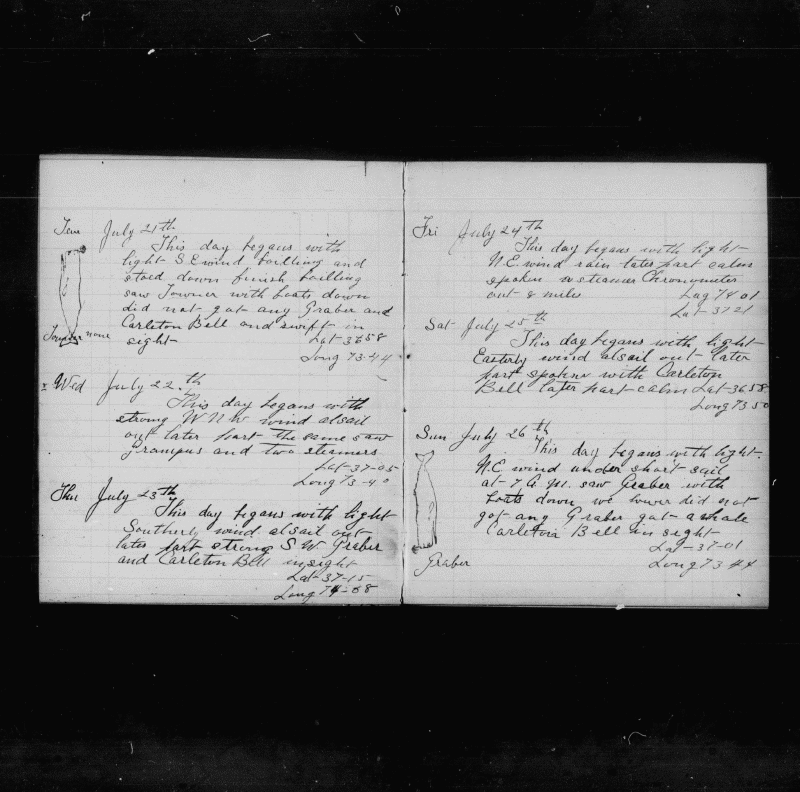 Tue July 21th
This day begans with
light S E wind boilling and
stoed down finish boilling
saw Towner with boats down
did not got any Graber and
Carleton Bell and swift in
sight Lat 36 58
Long 73-44
Towner none
x Wed July 22th
This day begans with
strong W N W wind alsail
out later part the same saw
grampus and two steamers
Lat-37-05
Long 73-40
Thu July 23th
This day begans with light
Southerly wind alsail out
later part strong S. W Graber
and Carleton Bell insight
Lat-37-15
Long 74-08
Fri July 24th
This day begans with light
N.E. wind rain later part calm
spoken w steamer Chronometer
out 8 miles Lag 74 01
Lat-37 21
Sat July 25th
This day begans with light
Easterly wind alsail out later
part spoken with Carleton
Bell later part calm Lat-36 58
Long 73 50
Sun July 26th
This day begans with light
N.E. wind under short sail
at 7 A.M. saw Graber with
boats down we lower did not
got any Graber got a whale
Carleton Bell in sight
Lat-37-01
Long 73 44
Graber